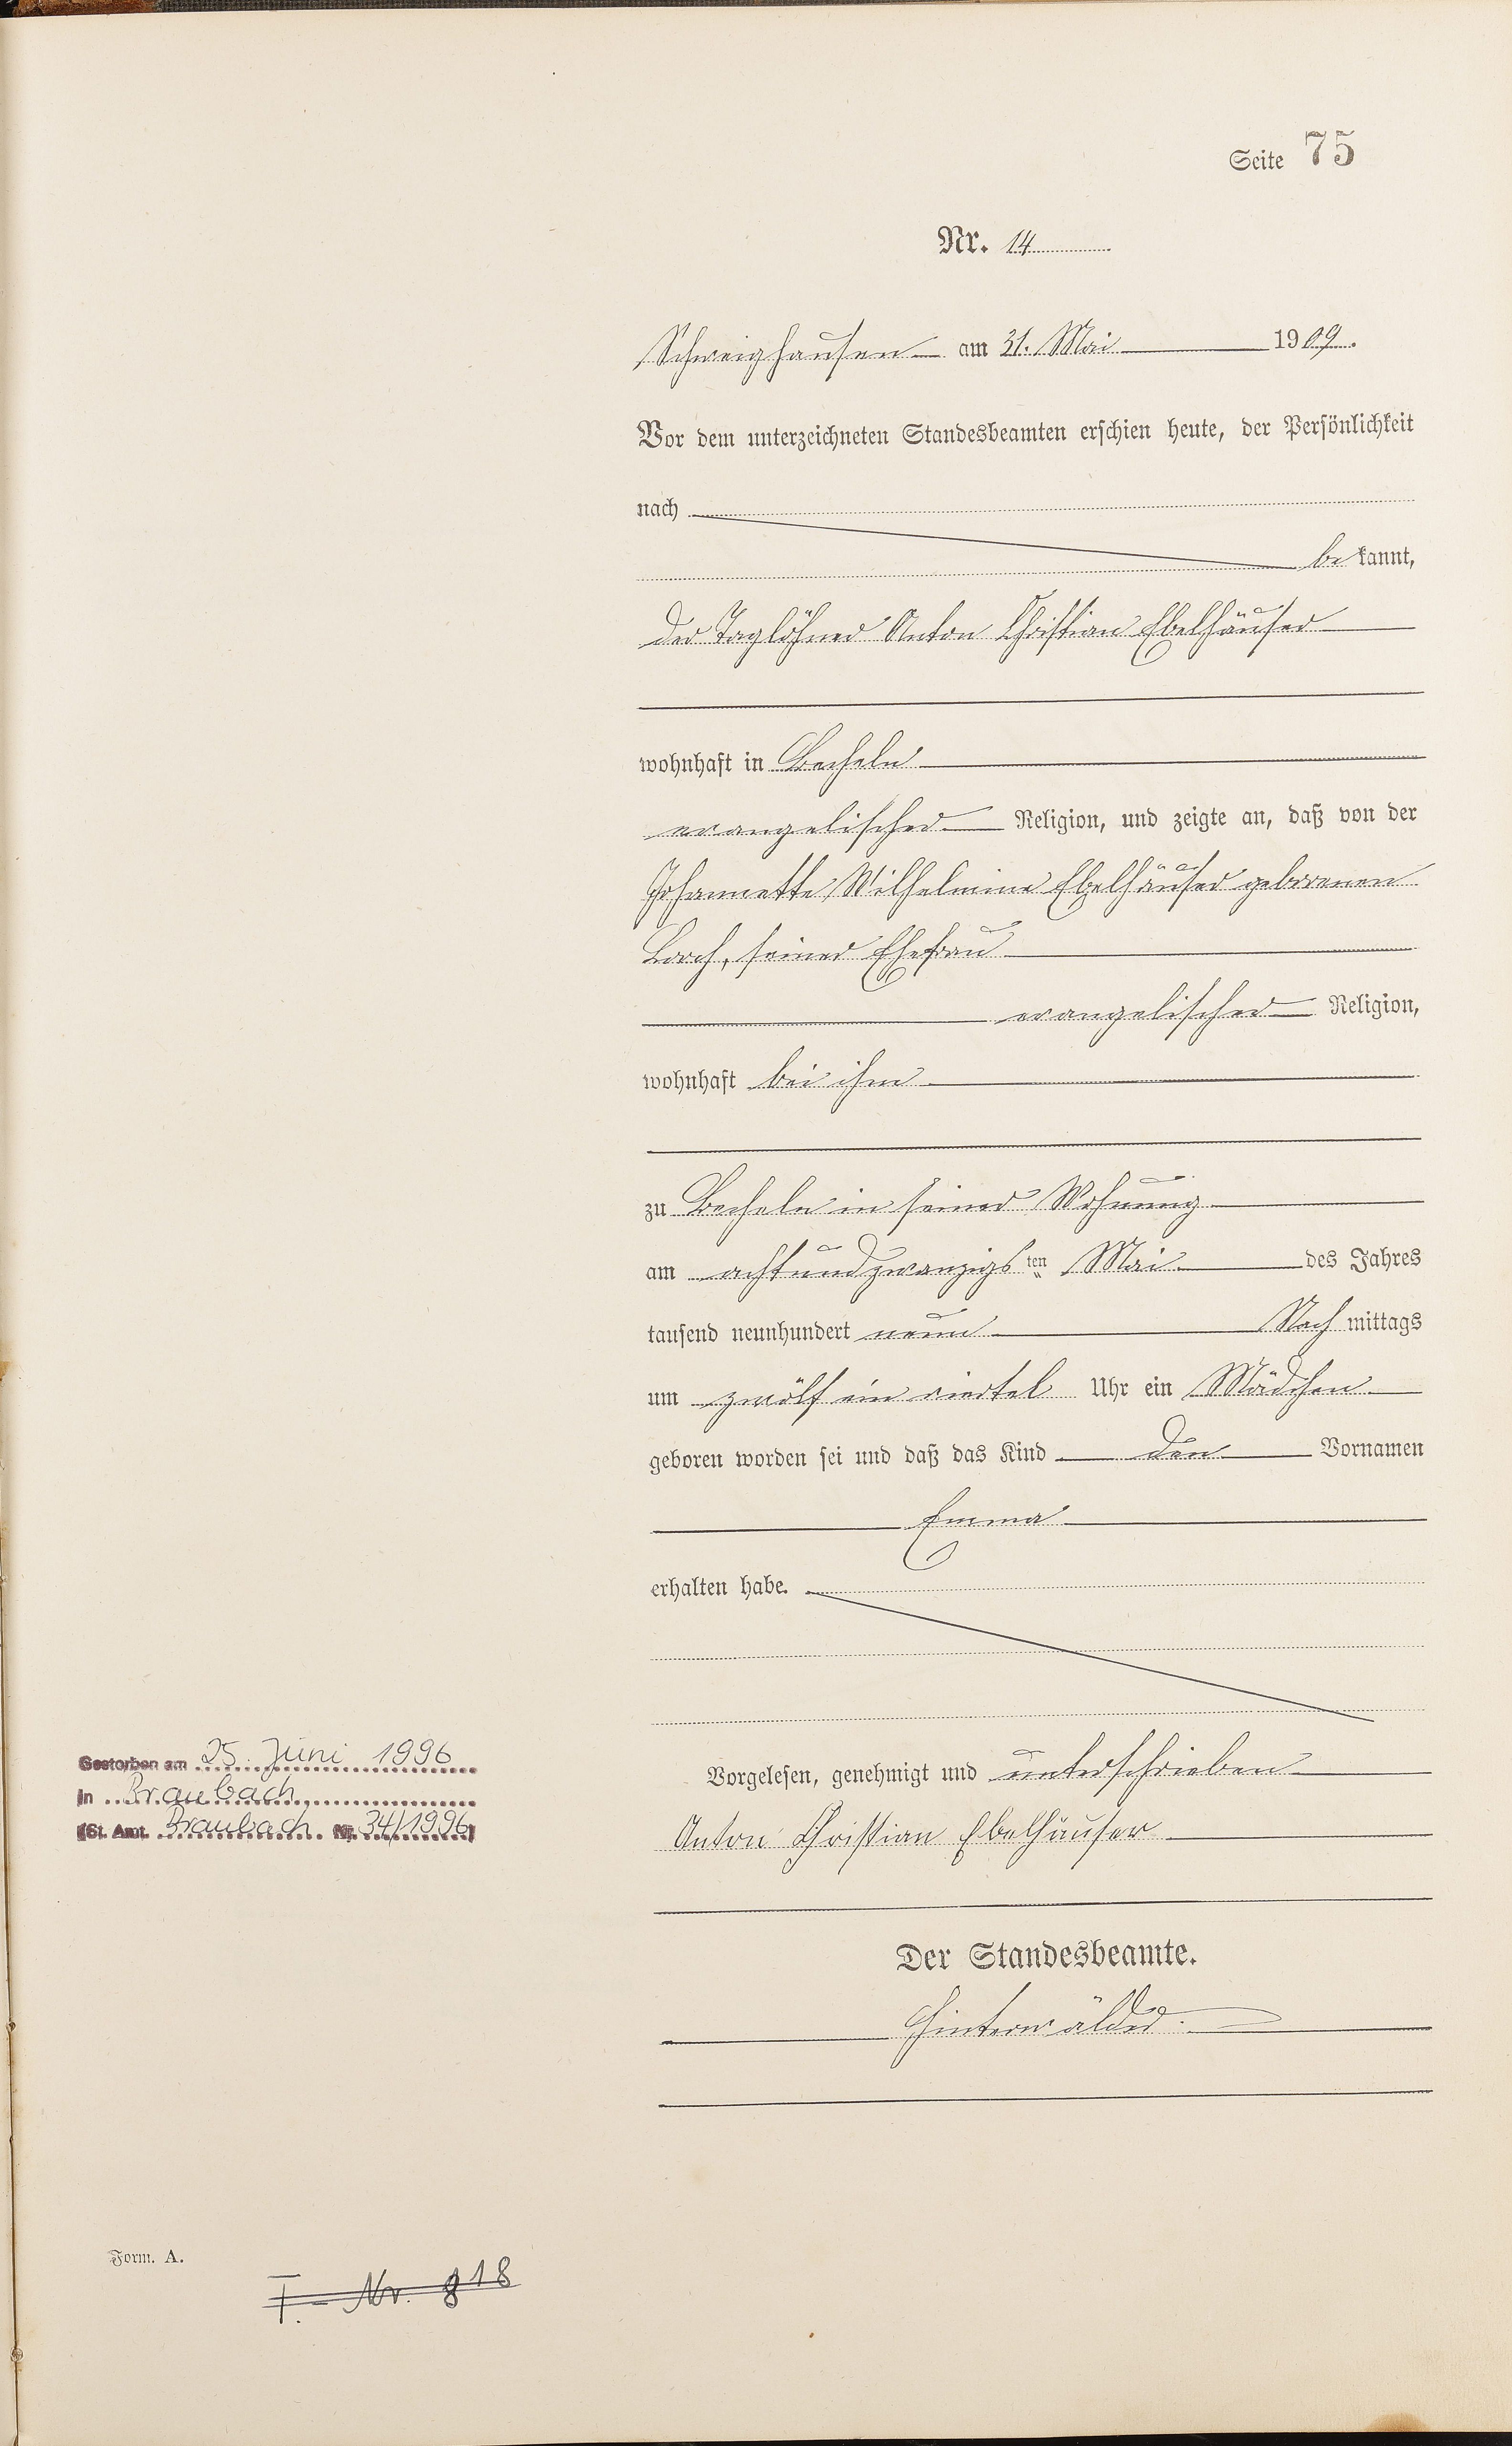 Seite 75
Nr. 14
Schweighausen am 31. Mai 1909.
Vor dem unterzeichneten Standesbeamten erschien heute, der Persönlichkeit
nach
bekannt,
der Taglöhner Anton Christian Ebelhäuser
wohnhaft in Becheln
evangelischer Religion, und zeigte an, daß von der
Johannette Wilhelmine Ebelhäuser geborenen
Lorch, seiner Ehefrau
evangelischer Religion,
wohnhaft bei ihm
zu Becheln in seiner Wohnung
am achtundzwanzigsten Mai des Jahres
tausend neunhundert neun Nachmittags
um zwölf ein viertel Uhr ein Mädchen
geboren worden sei und daß das Kind den Vornamen
Emma
erhalten habe.
Vorgelesen, genehmigt und unterschrieben
Anton Christian Ebelhäuser
Der Standesbeamte.
Hinterwälder.
Gestorben am 25. Juni 1996
in Braubach
(St. Amt Braubach Nr. 34/1996)
Form. A.
T. - Nr. 818